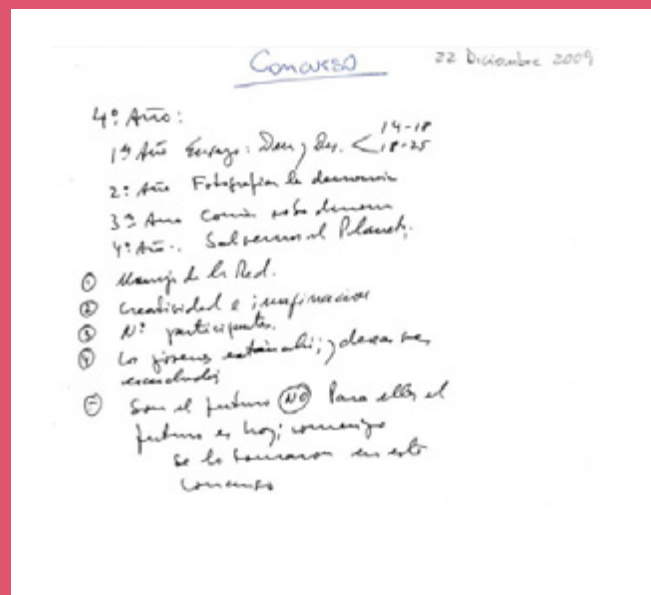 Concurso
22 Diciembre 2009
4º Año:
1º Año Ensayo: Dem y Des. < 14-18
18-25
2º Año Fotografiar la democracia
3º Año Comic sobre democra
4º Año.. Salvemos el Planeta,
① Manejo de la Red.
② Creatividad e imaginacion
③ Nº participantes.
④ Los jovenes estan ahi; y desean ser
escuchados
Son el futuro NO Para ellos el
futuro es hoy; comenzo
se lo tomaron en este
concurso